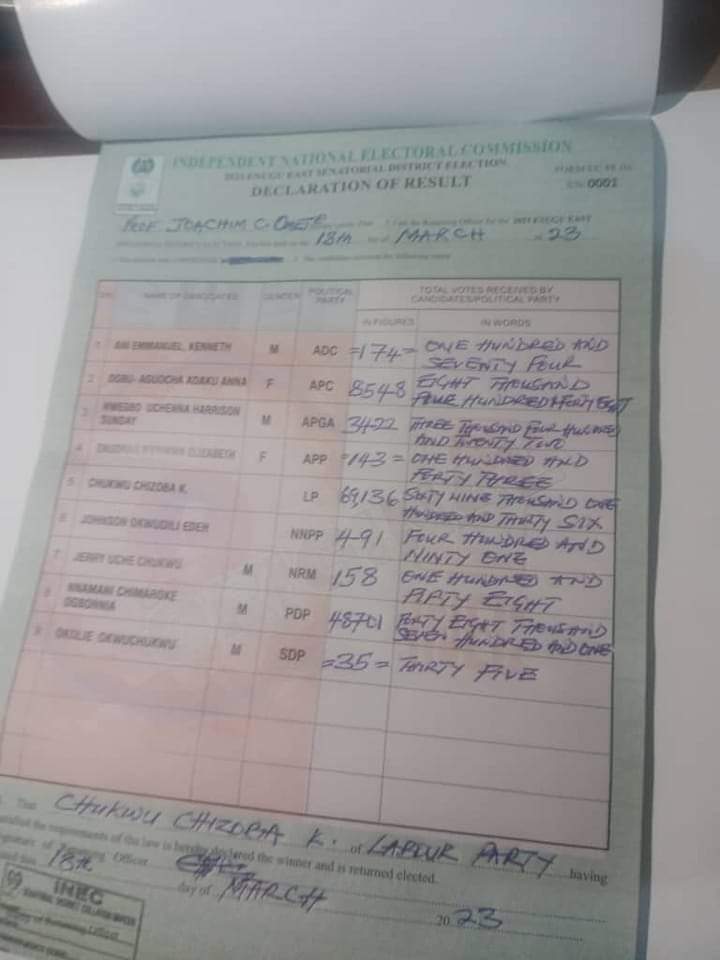 INDEPENDENT NATIONAL ELECTORAL COMMISSION
2023 ENUGU EAST SENATORIAL DISTRICT ELECTION
DECLARATION OF RESULT
0001
PROF. JOACHIM C. OMEJE
18th MARCH 23
NAME OF CANDIDATES GENDER POLITICAL PARTY TOTAL VOTES RECEIVED BY CANDIDATES/POLITICAL PARTY
IN FIGURES IN WORDS
1 ANI EMMANUEL, KENNETH M ADC =174= ONE HUNDRED AND SEVENTY FOUR
2 OGBU- AGUOCHA ADAKU ANNA F APC 8548 EIGHT THOUSAND FOUR HUNDRED & FORTY EIGHT
3 NWEGBO UCHENNA HARRISON SUNDAY M APGA 3422 THREE THOUSAND FOUR HUNDRED AND TWENTY TWO
4 ELIZABETH F APP =143= ONE HUNDRED AND FORTY THREE
5 CHUKWU CHIZOBA K. LP 69,136 SIXTY NINE THOUSAND ONE HUNDRED AND THIRTY SIX
6 JOHNSON OKWUDILI EDEH NNPP 491 FOUR HUNDRED AND NINTY ONE
7 JERRY UCHE CHUKWU M NRM 158 ONE HUNDRED AND FIFTY EIGHT
8 NNAMANI CHIMAROKE OGBONNIA M PDP 48701 FORTY EIGHT THOUSAND SEVEN HUNDRED AND ONE
9 OKOLIE OKWUCHUKWU M SDP =35= THIRTY FIVE
That CHUKWU CHIZOBA K. of LABOUR PARTY having
satisfied the requirements of the law is hereby declared the winner and is returned elected.
Signature of Returning Officer
18th day of MARCH 2023
INEC